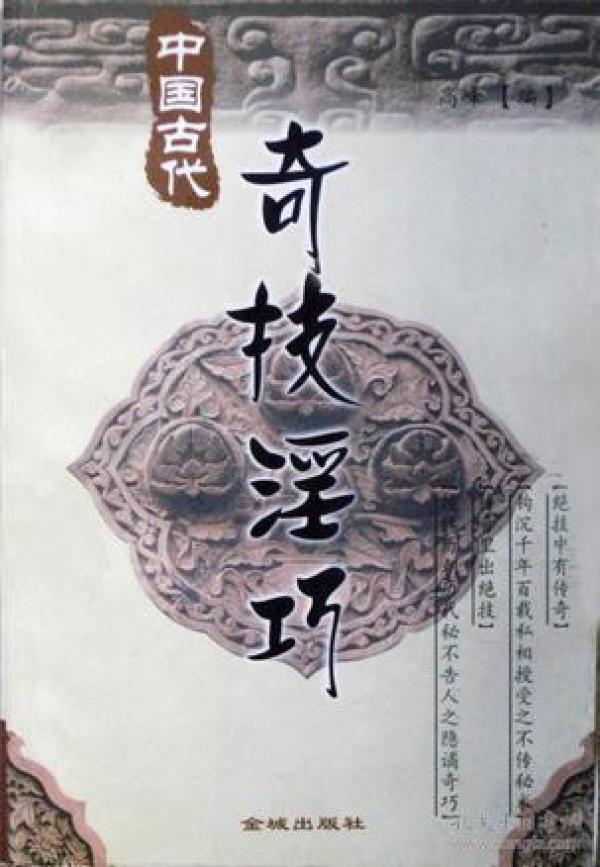 中国古代
奇技淫巧
高峰【编】
【绝技中有传奇】
钩沉千年百载私相授受之不传秘
里出绝技】
代秘不告人之隐谲奇巧】
金城出版社